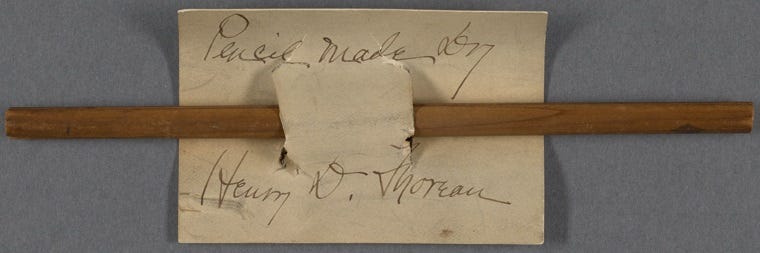 Pencil made by
Henry D. Thoreau